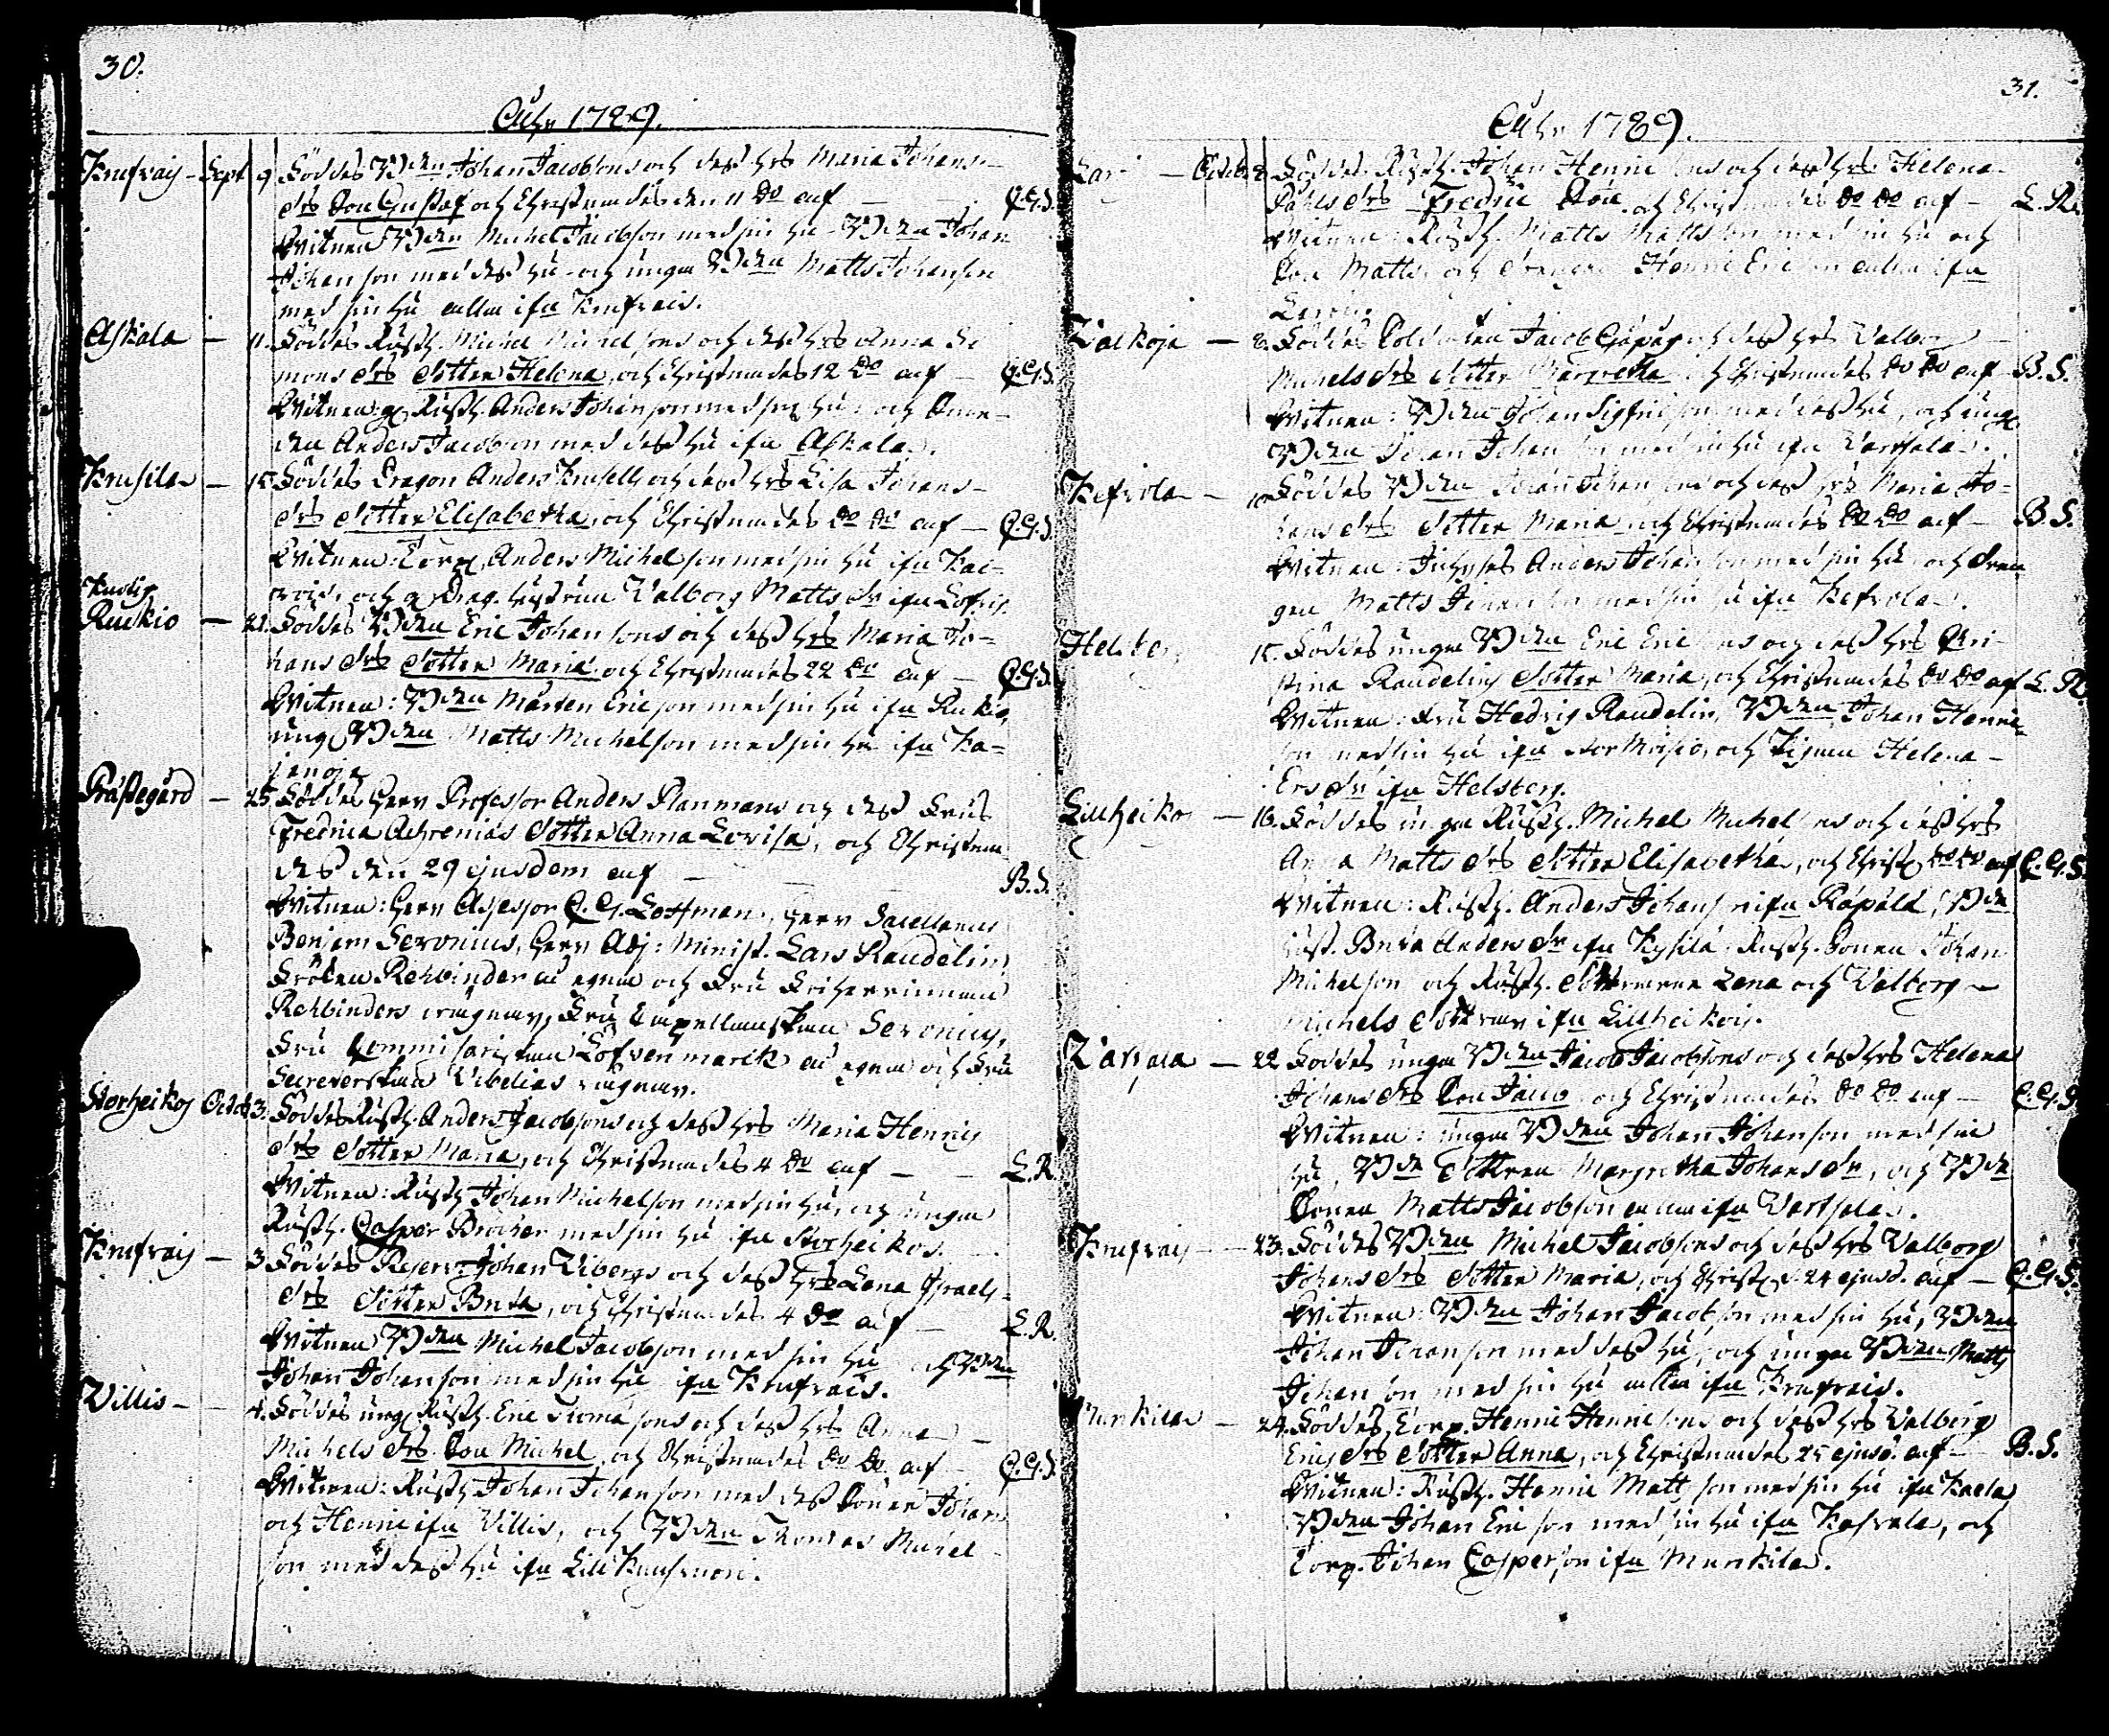 30.
Åhr 1789.
Knifvais – Sept 9 Föddes Bden Johan Jacobsons och dess hrs Maria Johans-
drs Son Gustaf och Christnades den 11 do auf – C.G.S.
Witnen Bden Michel Jacobson med sin hu Bden Johan
Johanson med dess hu och unga Bden Matts Johanson
med sin hu alla ifn Knifvais.
Askala – 11. Föddes Rusth. Michel Michelsons och dess hrs Anna Si
mons drs Dotter Helena, och Christnades 12 do auf – C.G.S.
Witnen: Rusth. Anders Johanson med sin hu och
den Anders Jacobson med dess hu ifn Askala.
Knusila – 15. Föddes Dragon Anders Knusells och dess hrs Lisa Johans-
drs Dotter Elisabetha, och Christnades do do auf – C.G.S.
Witnen: Torp. Anders Michelson med sin hu ifn Kai-
och Drag. hustrun Valborg Matts dr ifn
Ruokio – 21. Föddes Bden Eric Johansons och dess hrs Maria Jo-
hans drs Dotter Maria och Christnades 22 do auf – C.G.S.
Witnen: Bden Mårten Ericson med sin hu ifn Rukio,
ung Bden Matts Michelson med sin hu ifn Ka-
janoja
Prästegård – 25 Föddes Herr Professor Anders Planmans och dess Frus
Fredrica Achrenias Dotter Anna Lovisa, och Christna
des den 29 ejusdem auf – B.S.
Witnen: Herr Assessor C.G. Lostman, Herr Sacellanus
Benjam Seronius, Herr Adj: Minist. Lars Randelin,
Fröken Rehbinder å egna och Fru Friherrinnan
Rehbinders vägnar, Fru Capellanskan Seronius,
Fru Commissariskan Löfvenmarck å egna och Fru
Secreterskan Vibelias vägnar.
Storheikos Octob 3. Föddes Rusth. Anders Jacobsons och dess hrs Maria Henrics
drs Dotter Maria, och Christnades 4 do auf – L.R.
Witnen: Rusth Johan Michelson med sin hu, och unga
Rusth. Casper Brocker med sin hu ifn Storheikos.
Knifvais – 3. Föddes Reserv. Johan Vibergs och dess hrs Lena Israels-
drs Dotter Brita, och Christnades 4 do auf – L.R.
Witnen Bden Michel Jacobson med sin hu och Bden
Johan Johanson med sin hu ifn Knifvais.
Villis – 4. Föddes ung Rusth. Eric sons och dess hrs Anna
Michels drs Son Michel, och Christnades do do auf – C.G.S.
Witnen: Rusth Johan Johanson med dess Söner Johan
och Henric ifn Villis, och Bden Thomas Michel
son med dess hu ifn Lill
31.
Åhr 1789.
– Octob 8. Föddes Rusth. Johan Henricsons och dess hrs Helena
Påhls drs Fredric Son och Christnades do do auf – L.R.
Witnen: Rusth. Matts Mattsson med sin hu och
Son Matts, och Drengen Henric Ericson alla ifn

– 8. Föddes Soldaten Jacob och dess hrs Valborg
Michels drs Dotter Margretha och Christnades do do auf B.S.
Witnen: Bden Johan Sigfridson med dess hu, och unge
Bden Johan Johanson med sin hu ifn Vartsala.
Kefvola – 10 Föddes Bden Johan Johansons och dess hrs Maria Jo-
hans drs Dotter Maria och Christnades do do auf – B.S.
Witnen: Anders Johanson med sin hu och Dren
gen Matts Johanson med sin hu ifn Kefvola.
Helsberg 15. Föddes unga Bden Eric Ericsons och dess hrs Chri-
stina Randelins Dotter Maria, och Christnades do do auf L.R.
Witnen: Fru Hedvig Randelin, Bden Johan Henric-
son med sin hu ifn Stor Moisio, och Pigan Helena
Ers dr ifn Helsberg.
Lillheikos – 16. Föddes unga Rusth. Michel Michelsons och dess hrs
Anna Matts drs Dotter Elisabetha, och Christ do do auf C.G.S.
Witnen: Rusth. Anders Johanson ifn Råpåla, Bde
hust. Brita Anders dr ifn Kyssilä Rusth. Sonen Johan
Michelson och Rusth. Döttrarne Lena och Valborg
Michels Döttrar ifn Lillheikois.
Vartsala – 22 Föddes unga Bden Jacob Jacobsons och dess hrs Helena
Johans drs Son Jacob och Christnades do do auf – C.G.S.
Witnen: unga Bden Johan Johanson med sin
hu, Bde Dottren Margretha Johans dr, och Bde
Sonen Matts Jacobson alla ifn Vartsala.
Knifvais – 23. Föddes Bden Michel Jacobsons och dess hrs Valborg
Johans drs Dotter Maria, och Christ d. 24 ejusd. auf – C.G.S.
Witnen: Bden Johan Jacobson med sin hu, Bden
Johan Johanson med dess hu, och unga Bden Matts
Johanson med sin hu alla ifn Knifvais.
Murikila – 24. Föddes Torp. Henric Henricsons och dess hrs Valborg
Erics drs Dotter Anna, och Christnades 25 ejusd. auf – B.S.
Witnen: Rusth. Henric Mattsson med sin hu ifn Kaela
Bden Johan Ericson med sin hu ifn Kasvala, och
Torp. Johan Casperson ifn Murikila.